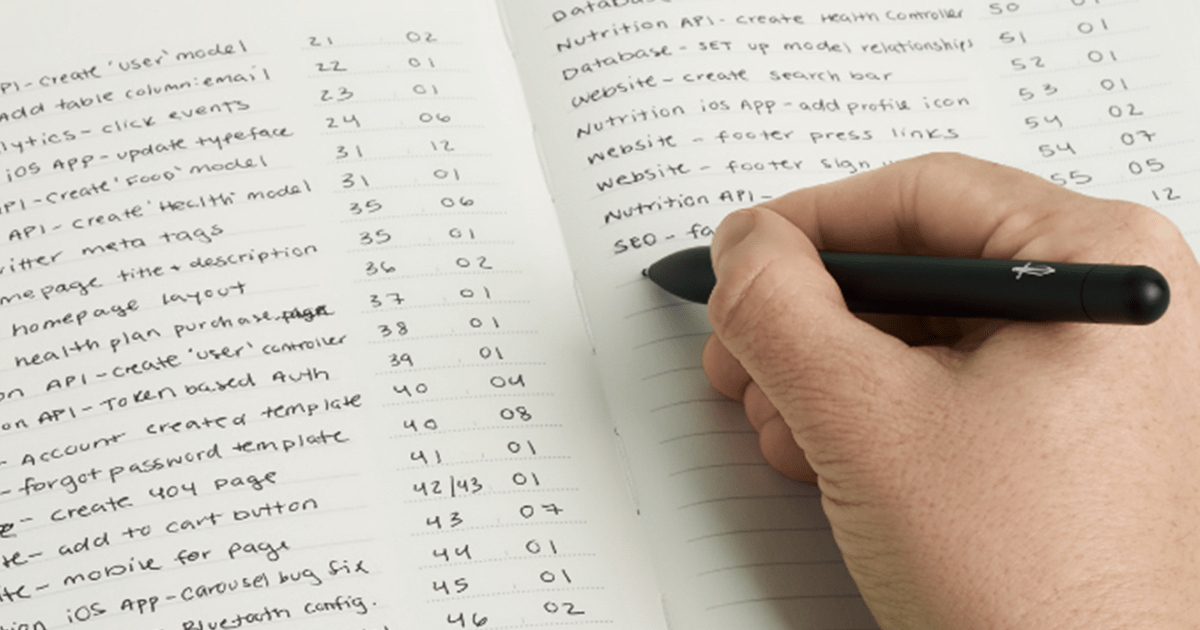 API - create 'user' model 21 02
Add table column: email 22 01
click events 23 01
iOS App - update typeface 24 06
API - Create 'Food' model 31 12
API - create 'Health' model 31 01
meta tags 35 06
page title + description 35 01
homepage layout 36 02
health plan purchase 37 01
API - create 'user' controller 38 01
API - Token based Auth 39 01
- Account created template 40 04
- forgot password template 40 08
- create 404 page 41 01
- add to cart button 42/43 01
- mobile for page 43 07
iOS App - carousel bug fix 44 01
Bluetooth config. 45 01
46 02
Nutrition API - create Health Controller 50
Database - SET up model relationships 51 01
website - create search bar 52 01
Nutrition iOS App - add profile icon 53 01
website - footer press links 54 02
website - footer sign 54 07
Nutrition API - 55 05
SEO - 12